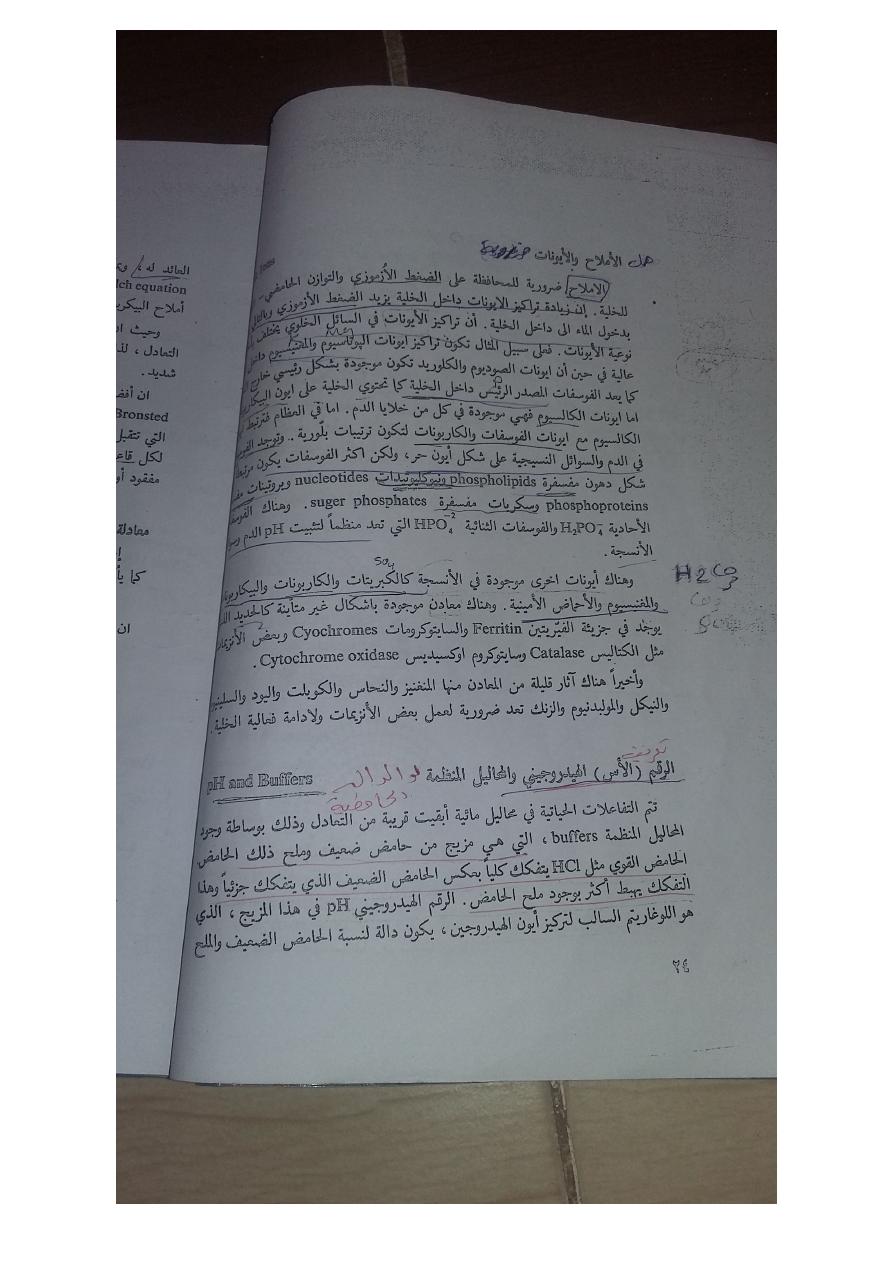 العائد له ،
lch equation
أملاح البيكرب
وحيث ا
التعادل ، لذ
شديد .
ان أفض
Bronsted
التي تتقبل
لكل قاع
مفقود أو
معادلة
كما يأ
ان
هل الأملاح والأيونات ضرورية
الاملاح ضرورية للمحافظة على الضغط الأزموزي والتوازن الحامضي -
للخلية . إن زيادة تراكيز الايونات داخل الخلية يزيد الضغط الأزموزي وبالتالي
بدخول الماء الى داخل الخلية . أن تراكيز الأيونات في السائل الخلوي يختلف
نوعية الأيونات . فعلى سبيل المثال تكون تراكيز ايونات البوتاسيوم والمغنيسيوم داخل
عالية في حين أن ايونات الصوديوم والكلوريد تكون موجودة بشكل رئيسي خارج
كما يعد الفوسفات المصدر الرئيس داخل الخلية كما تحتوي الخلية على ايون البيكار
اما ايونات الكالسيوم فهي موجودة في كل من خلايا الدم . اما في العظام فترتبط
الكالسيوم مع ايونات الفوسفات والكاربونات لتكون ترتيبات بلورية . وتوجد الفو
في الدم والسوائل النسيجية على شكل أيون حر ، ولكن اكثر الفوسفات يكون مرتبط
شكل دهون مفسفرة phospholipids ونيوكليوتيدات nucleotides وبروتينات مف
phosphoproteins وسكريات مفسفرة suger phosphates . وهناك الفوسف
الأحادية H₂PO₄⁻ والفوسفات الثنائية HPO₄⁻² التي تعد منظماً لتثبيت pH الدم وسو
الأنسجة .
SO₄
وهناك أيونات اخرى موجودة في الأنسجة كالكبريتات والكاربونات والبيكاربون
H2CO3
والمغنيسيوم والأحماض الأمينية . وهناك معادن موجودة باشكال غير متأينة كالحديد الذ
يوجد في جزيئة الفيريتين Ferritin والسايتوكرومات Cyochromes وبعض الأنزيمات
مثل الكتاليس Catalase وسايتوكروم اوكسيديس Cytochrome oxidase .
وأخيراً هناك آثار قليلة من المعادن منها المنغنيز والنحاس والكوبلت واليود والسلينيوم
والنيكل والموليبدنيوم والزنك تعد ضرورية لعمل بعض الأنزيمات ولادامة فعالية الخلية .
تعريف
الرقم (الأس) الهيدروجيني والمحاليل المنظمة pH and Buffers
تتم التفاعلات الحياتية في محاليل مائية أبقيت قريبة من التعادل وذلك بوساطة وجود
المحاليل المنظمة buffers ، التي هي مزيج من حامض ضعيف وملح ذلك الحامض
الحامض القوي مثل HCl يتفكك كلياً بعكس الحامض الضعيف الذي يتفكك جزئياً وهذا
التفكك يهبط أكثر بوجود ملح الحامض . الرقم الهيدروجيني pH في هذا المزيج ، الذي
هو اللوغاريتم السالب لتركيز أيون الهيدروجين ، يكون دالة لنسبة الحامض الضعيف والملح
٢٤